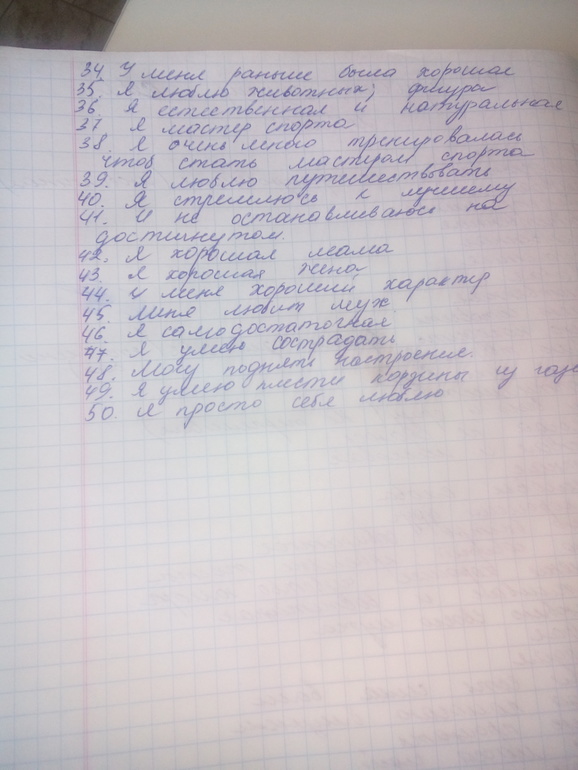 34. У меня раньше была хорошая
35. Я люблю животных; фигура
36 Я естественная и натуральная
37 Я мастер спорта
38. Я очень много тренировалась
чтоб стать мастером спорта
39. Я люблю путешествовать
40. Я стремлюсь к лучшему
41. И не останавливаюсь на
достигнутом.
42. Я хорошая мама
43. Я хорошая жена
44. У меня хороший характер
45. Меня любит муж.
46. Я самодостаточная
47. Я умею сострадать
48. Могу поднять настроение.
49. Я умею плести корзины из газе
50. Я просто себя люблю